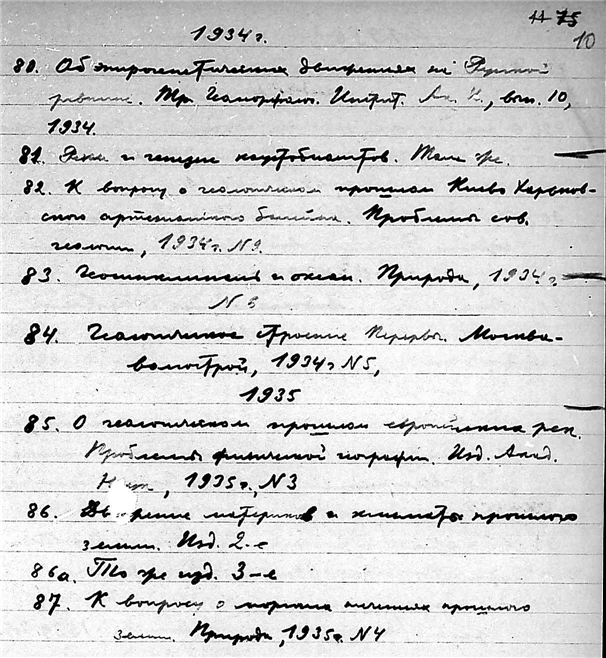 11 75
10
1934 г.
80. Об эпирогенетических движениях на Русской
равнине. Тр. Геоморфол. Инстит. Ак. Н., вып. 10,
1934.
81. и генезис каустобиолитов. Там же.
82. К вопросу о геологическом прошлом Киево Харьков-
ского артезианского бассейна. Проблемы сов.
геологии, 1934 г. N 9.
83. Геосинклиналь и океан. Природа, 1934 г.
N
84. Геологическое строение Перервы. Москва-
волгострой, 1934 г N 5,
1935
85. О геологическом прошлом европейских рек.
Проблемы физической географии. Изд. Акад.
Наук, 1935 г., N 3
86. Движение материков и климаты прошлого
земли. Изд. 2-е
86а. То же изд. 3-е
87. К вопросу о морских течениях прошлого
земли. Природа, 1935 г. N 4